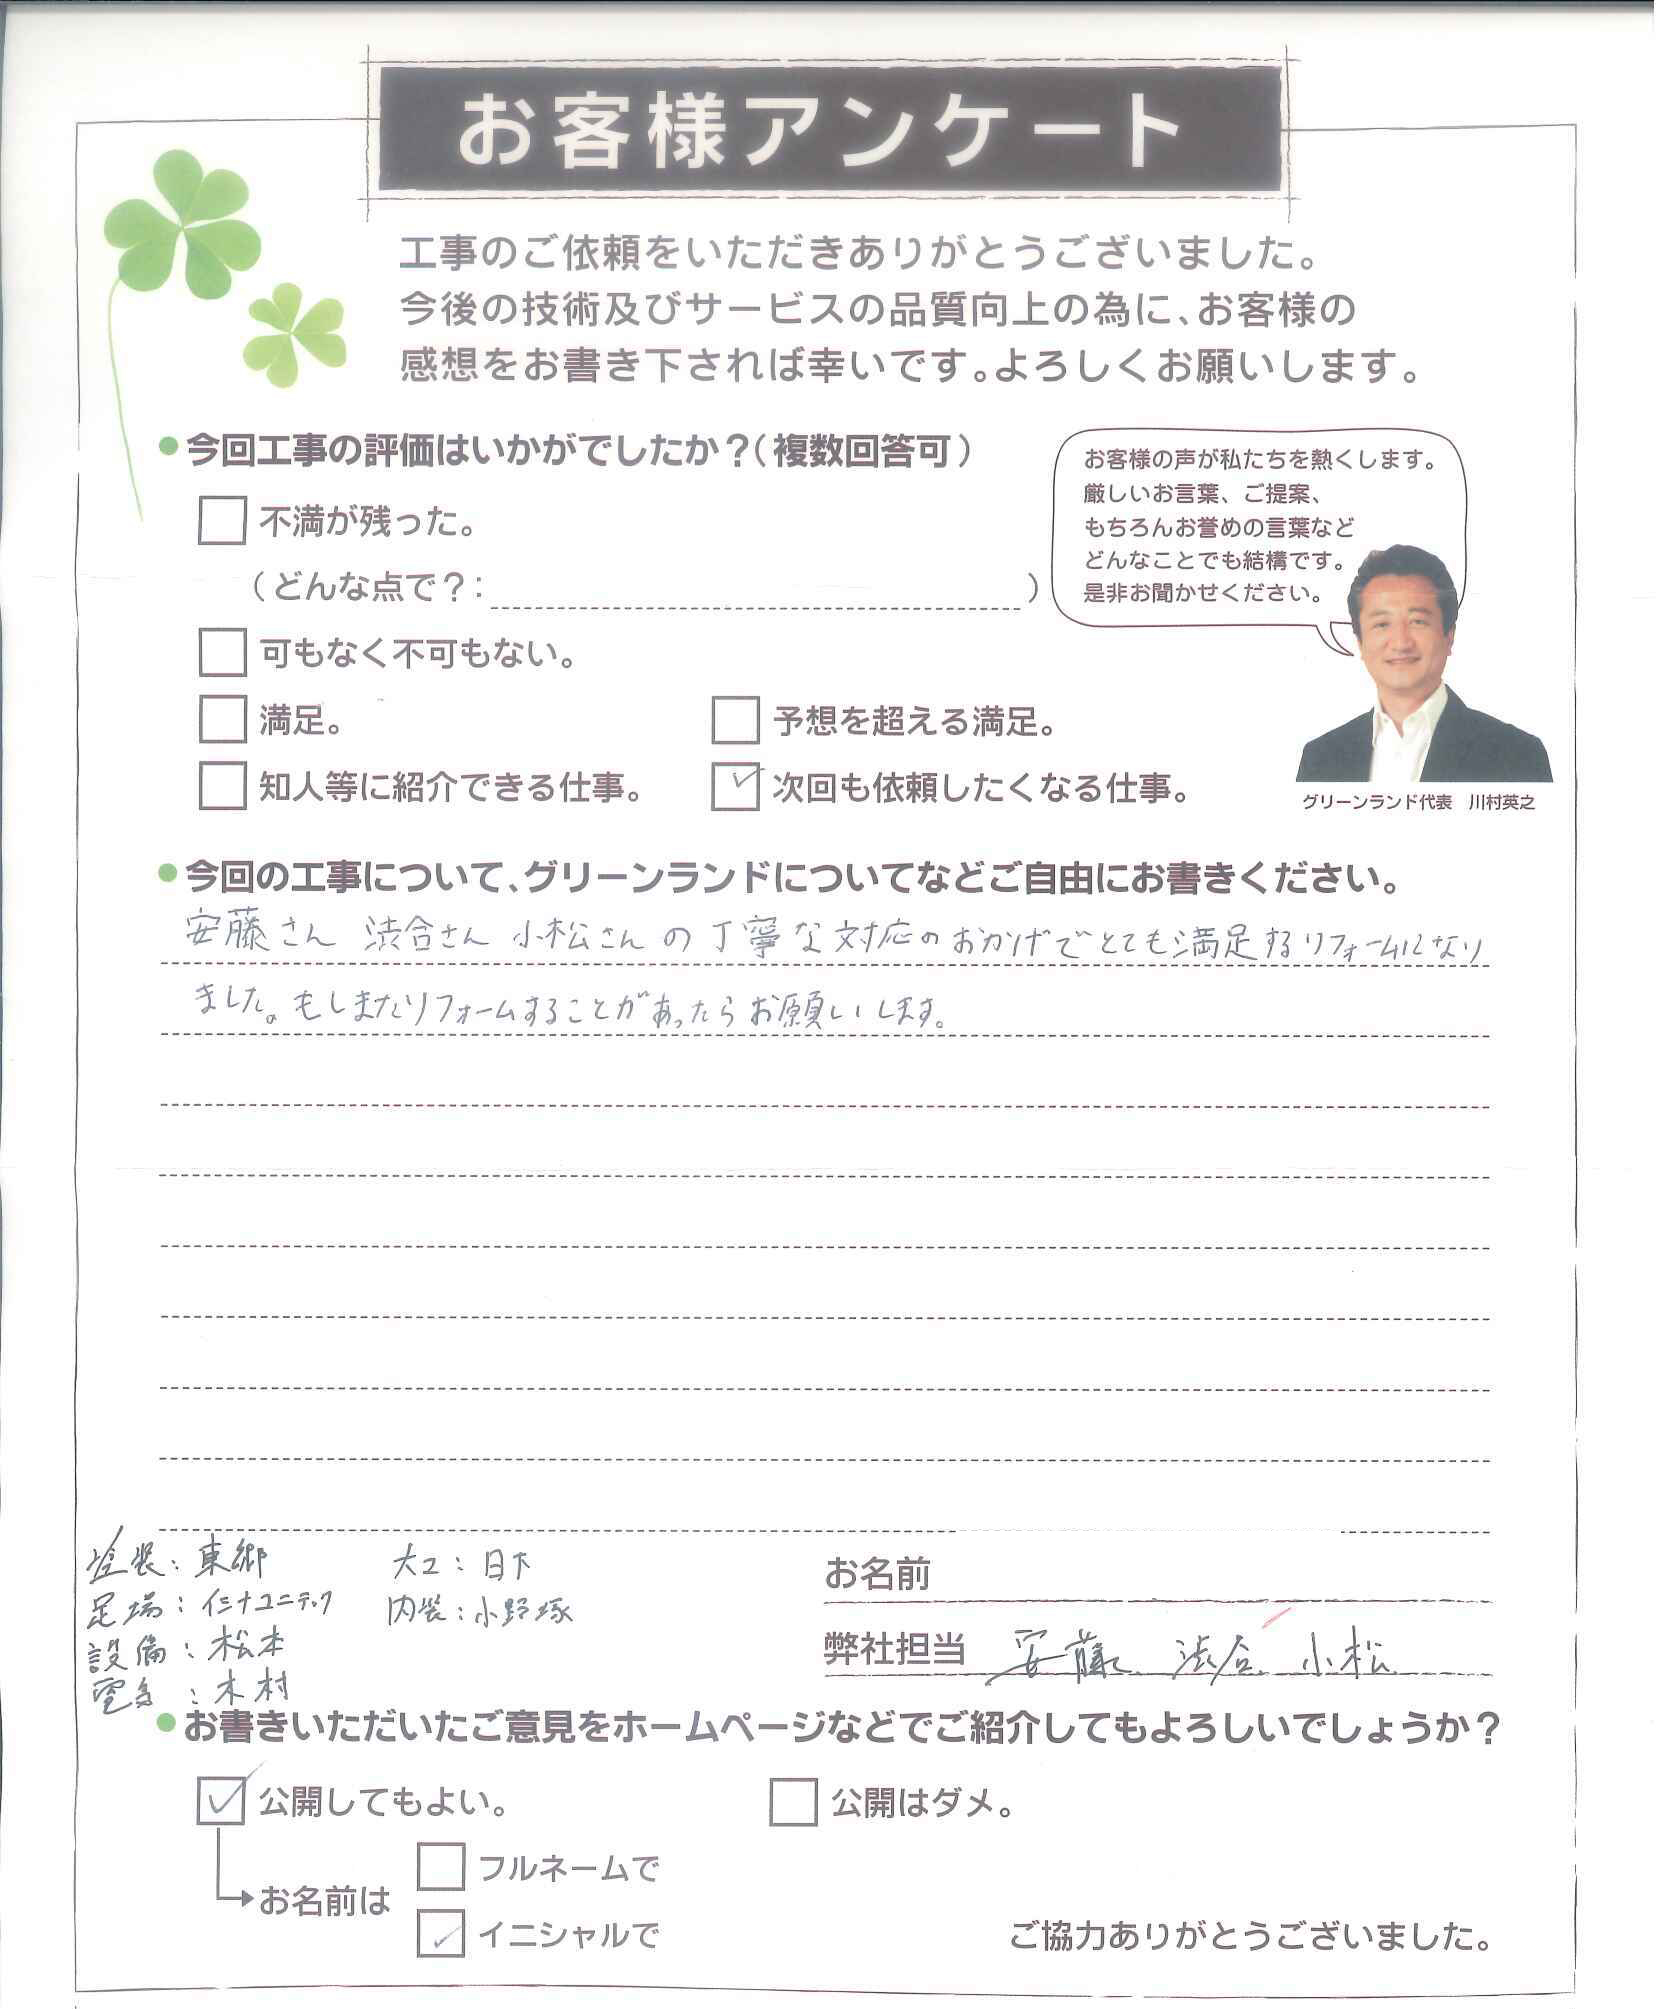 お客様アンケート
工事のご依頼をいただきありがとうございました。
今後の技術及びサービスの品質向上の為に、お客様の
感想をお書き下されば幸いです。よろしくお願いします。
今回工事の評価はいかがでしたか?(複数回答可)
不満が残った。
(どんな点で?: )
可もなく不可もない。
満足。
予想を超える満足。
知人等に紹介できる仕事。
✓ 次回も依頼したくなる仕事。
お客様の声が私たちを熱くします。
厳しいお言葉、ご提案、
もちろんお誉めの言葉など
どんなことでも結構です。
是非お聞かせください。
グリーンランド代表 川村英之
今回の工事について、グリーンランドについてなどご自由にお書きください。
安藤さん 渋合さん 小松さんの丁寧な対応のおかげでとても満足するリフォームになり
ました。もしまたリフォームすることがあったらお願いします。
塗装:東郷
足場:イミナユニテック
設備:松本
電気:木村
大工:日下
内装:小野塚
お名前
弊社担当 安藤 渋合 小松
お書きいただいたご意見をホームページなどでご紹介してもよろしいでしょうか?
✓ 公開してもよい。
公開はダメ。
お名前は
フルネームで
✓ イニシャルで
ご協力ありがとうございました。